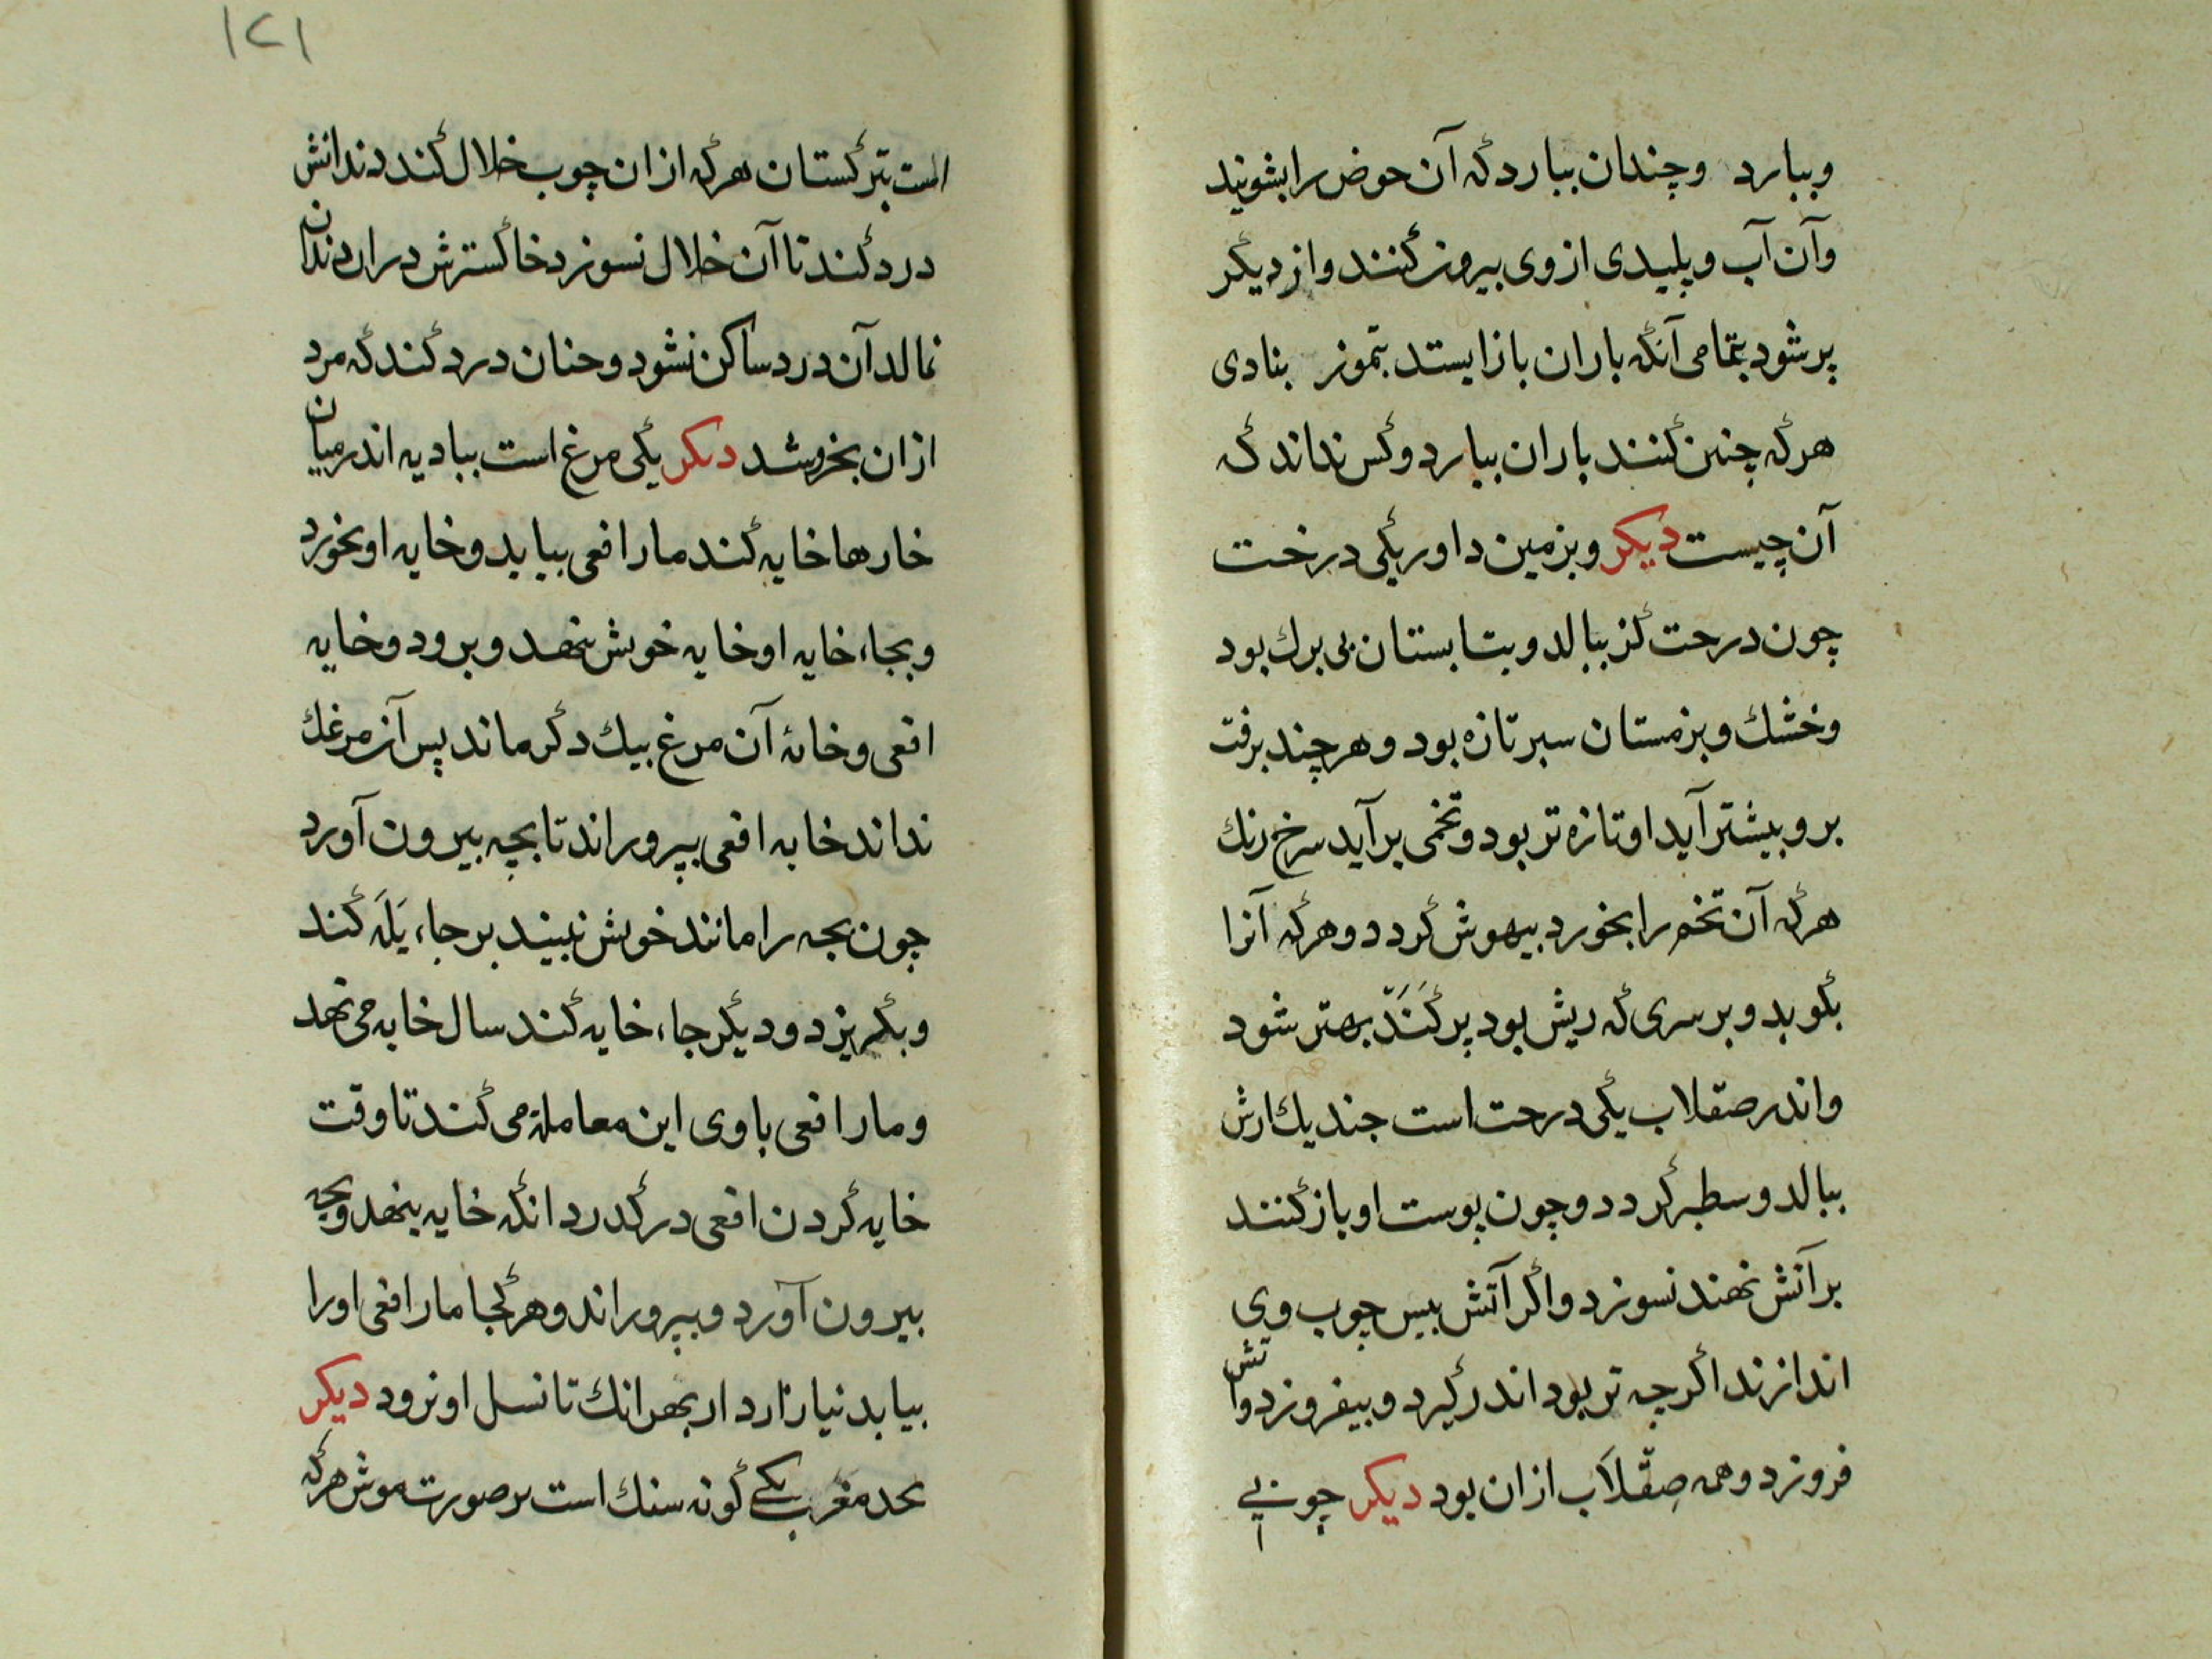 وببارد وچندان ببارد که آن حوض را بشویند
وآن آب وپلیدی از وی بیرون کنند واز دیگر
پر شود بتمامی آنگه باران باز ایستد بتموز بنادی
هر که چنین کنند باران ببارد وکس نداند که
آن چیست دیکر وبزمین داور یکی درخت
چون درحت کز ببالد وبتابستان بی برك بود
وخشك وبزمستان سبر تازه بود وهر چند برفت
برو بیشتر آید او تازه تر بود وتخمی بر آید سرخ رنك
هر که آن تخم را بخورد بیهوش کردد وهر که آنرا
بکوبد وبر سری که ریش بود پر کَنَدّ بهتر شود
واندر صقلاب یکی درحت است جند یك ارش
ببالد وسطبر کردد وچون پوست او باز کنند
بر آتش نهند نسوزد واکر آتش بیس چوب وی
اندازند اکر چه تر بود اندر کیرد وبیفروزد وآتش
فروزد وهمه صِقْلَاب ازان بود دیکر چوبی
است بترکستان هر که ازان چوب خلال کند دندانش
درد کند تا آن خلال نسوزد خاکسترش دران دندان
نمالد آن درد ساکن نشود وحنان درد کند که مرد
ازان بخروشد دیکر یکی مرغ است ببادیه اندر میان
خارها خایه کند مار افعی بیاید وخایه او بخورد
وبجاء خایه او خایه خویش بنهد وبرود وخایه
افعی وخانهٔ آن مرغ بیك دکر ماند پس آن مرغك
نداند خایه افعی بپروراند تا بچه بیرون آورد
چون بجه را مانند خویش نبیند بر جاء یَلَه کند
وبکریزد ودیکر جاء خایه کند سال خایه می نهد
ومار افعی با وی این معامله می کند تا وقت
خایه کردن افعی در کدرد انکه خایه بنهد وبچه
بیرون آورد وبپروراند وهر کجا مار افعی او را
بیابد نیازارد از بهر انك تا نسل او نرود دیکر
بحد مغرب یکے کونه سنك است بر صورت موش هر که